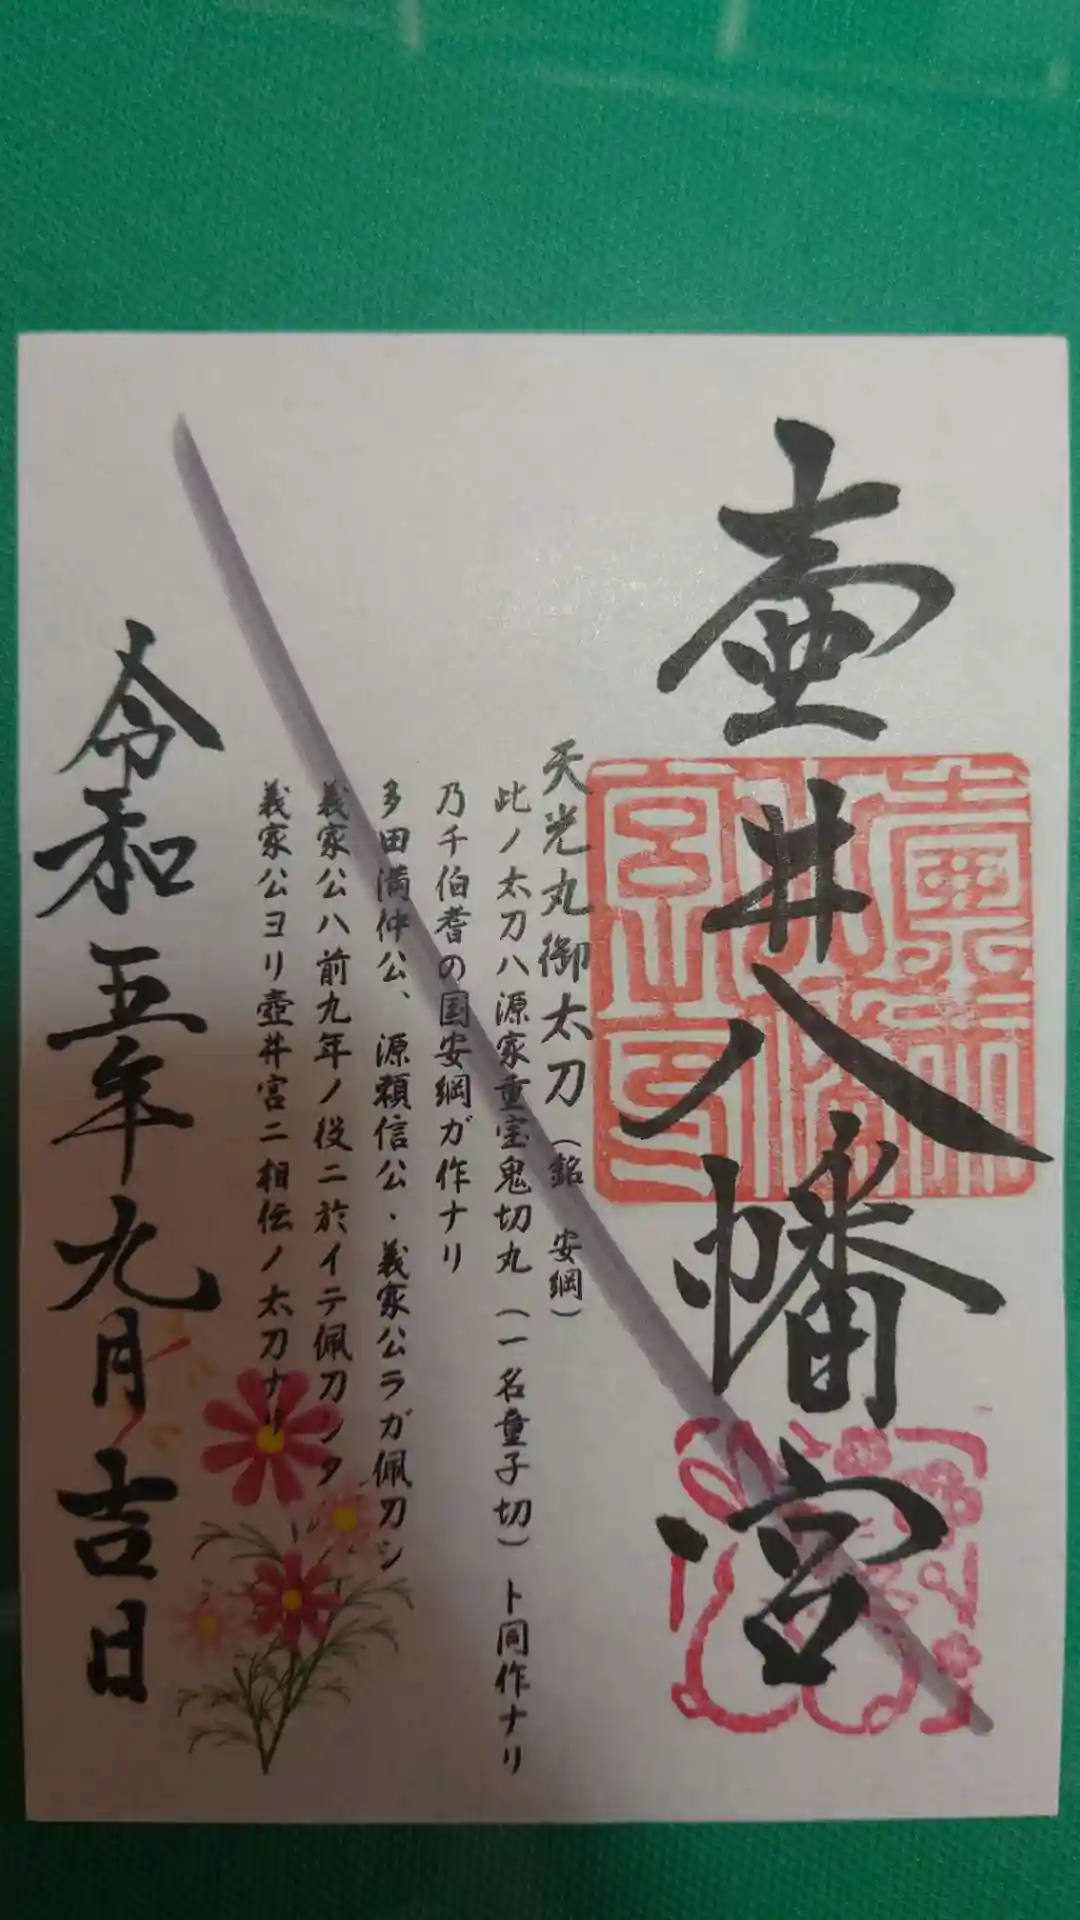 壷井八幡宮
天光丸御太刀（銘 安綱）
此ノ太刀ハ源家重宝鬼切丸（一名童子切）ト同作ナリ
乃チ伯耆の国安綱ガ作ナリ
多田満仲公、源頼信公・義家公ラガ佩刀シ
義家公ハ前九年ノ役ニ於イテ佩刀シタ
義家公ヨリ壺井宮ニ相伝ノ太刀ナリ
令和五年九月吉日